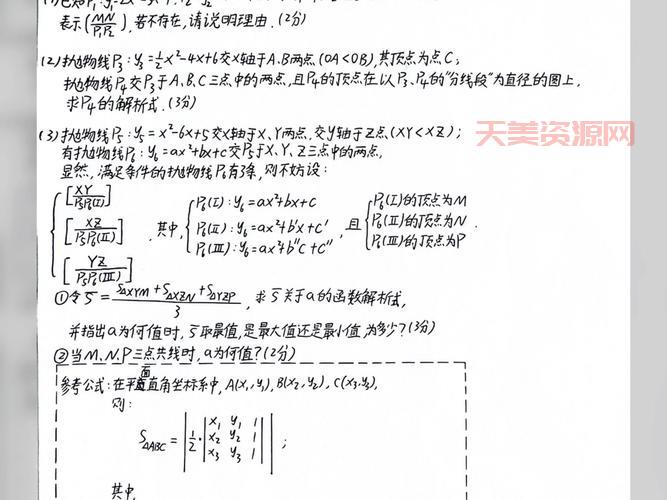 表示[MN/P₁P₂],若不存在,请说明理由.(2分)
(2)抛物线P₃:y₃=½x²-4x+6交x轴于A、B两点(OA<OB),其顶点为点C;
抛物线P₄交P₃于A、B、C三点中的两点,且P₄的顶点在以P₃、P₄的"分线段"为直径的图上,
求P₄的解析式.(3分)
(3)抛物线P₅:y₅=x²-6x+5交x轴于X、Y两点,交y轴于Z点(XY<XZ);
天美资源网
有抛物线P₆:y₆=ax²+bx+c交P₅于X、Y、Z三点中的两点,
显然,满足条件的抛物线P₆有3条,则不妨设:
{[XY/P₅P₆(I)] [XZ/P₅P₆(II)] [YZ/P₅P₆(III)] .其中,{P₆(I):y₆=ax²+bx+c P₆(II):y₆=ax²+b'x+c' P₆(III):y₆=ax²+b"c+c" ,且{P₆(I)的顶点为M P₆(II)的顶点为N P₆(III)的顶点为P .
①令S̄=(S△XYM+S△XZN+S△YZP)/3,求S̄关于a的函数解析试,
并指出a为何值时,S̄取最值,是最大值还是最小值,为多少?(3分)
②当M、N、P三点共线时,a为何值?(2分)
参考公式:在平面直角坐标系中,A(x₁,y₁),B(x₂,y₂),C(x₃,y₃),
则:
S△ABC=|½·|x₁ y₁ 1| |x₂ y₂ 1| |x₃ y₃ 1||;
其中,